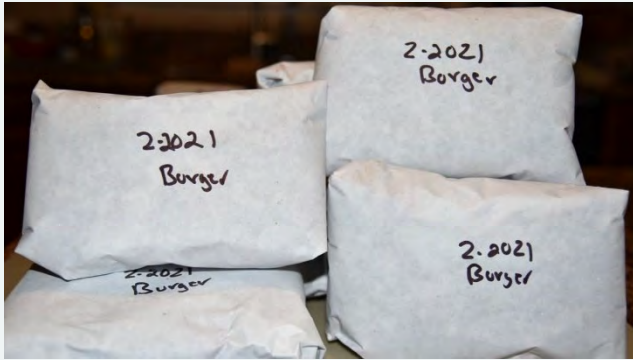 2-2021
Burger
2-2021
Burger
2-2021
Burger
2-2021
Burger